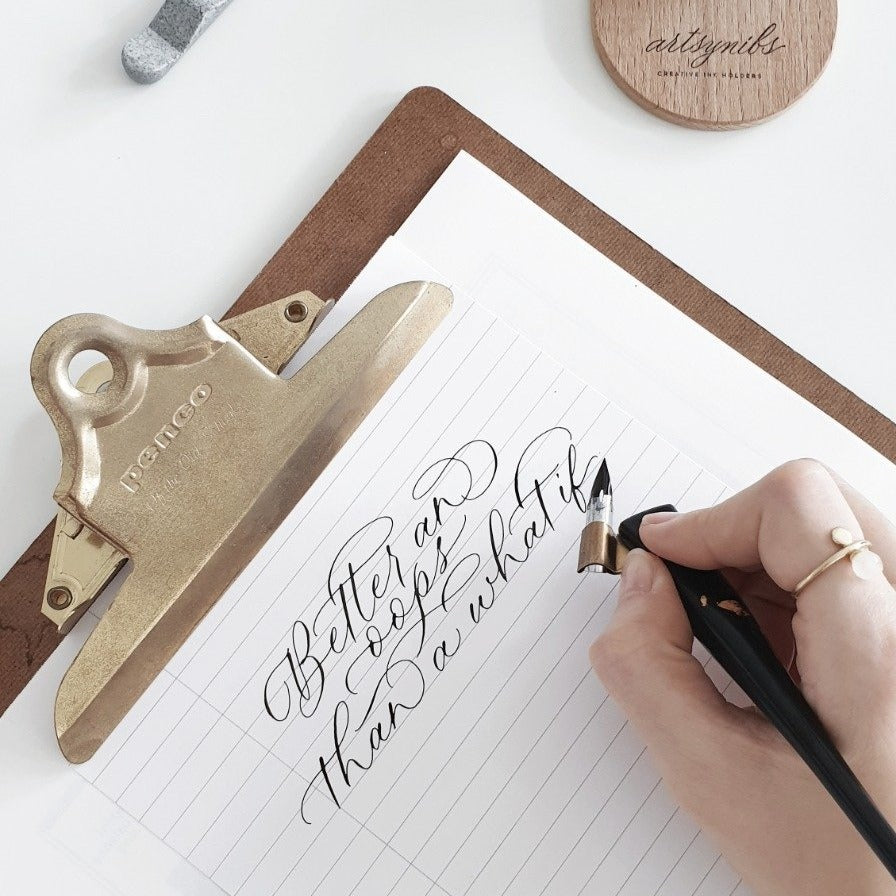 artsynibs
CREATIVE INK HOLDERS
penco
Better an
oops
than a what if